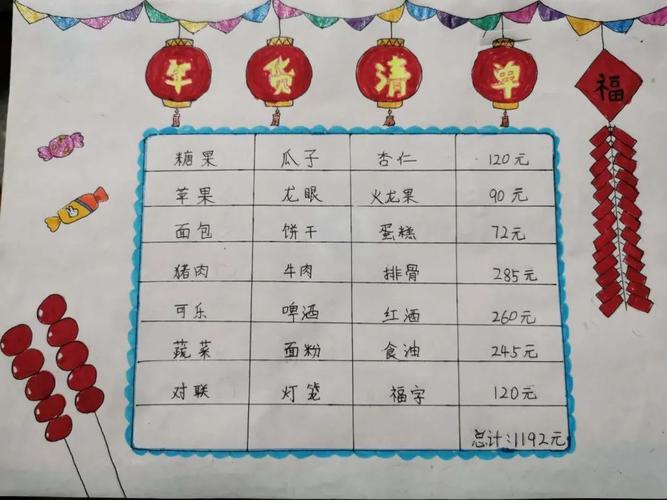 年货清单
福
糖果 瓜子 杏仁 120元
苹果 龙眼 火龙果 90元
面包 饼干 蛋糕 72元
猪肉 牛肉 排骨 285元
可乐 啤酒 红酒 260元
蔬菜 面粉 食油 245元
对联 灯笼 福字 120元
总计:1192元